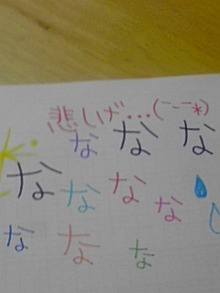 悲しいゲ…(－－*)
な な な
な な な な
な な な